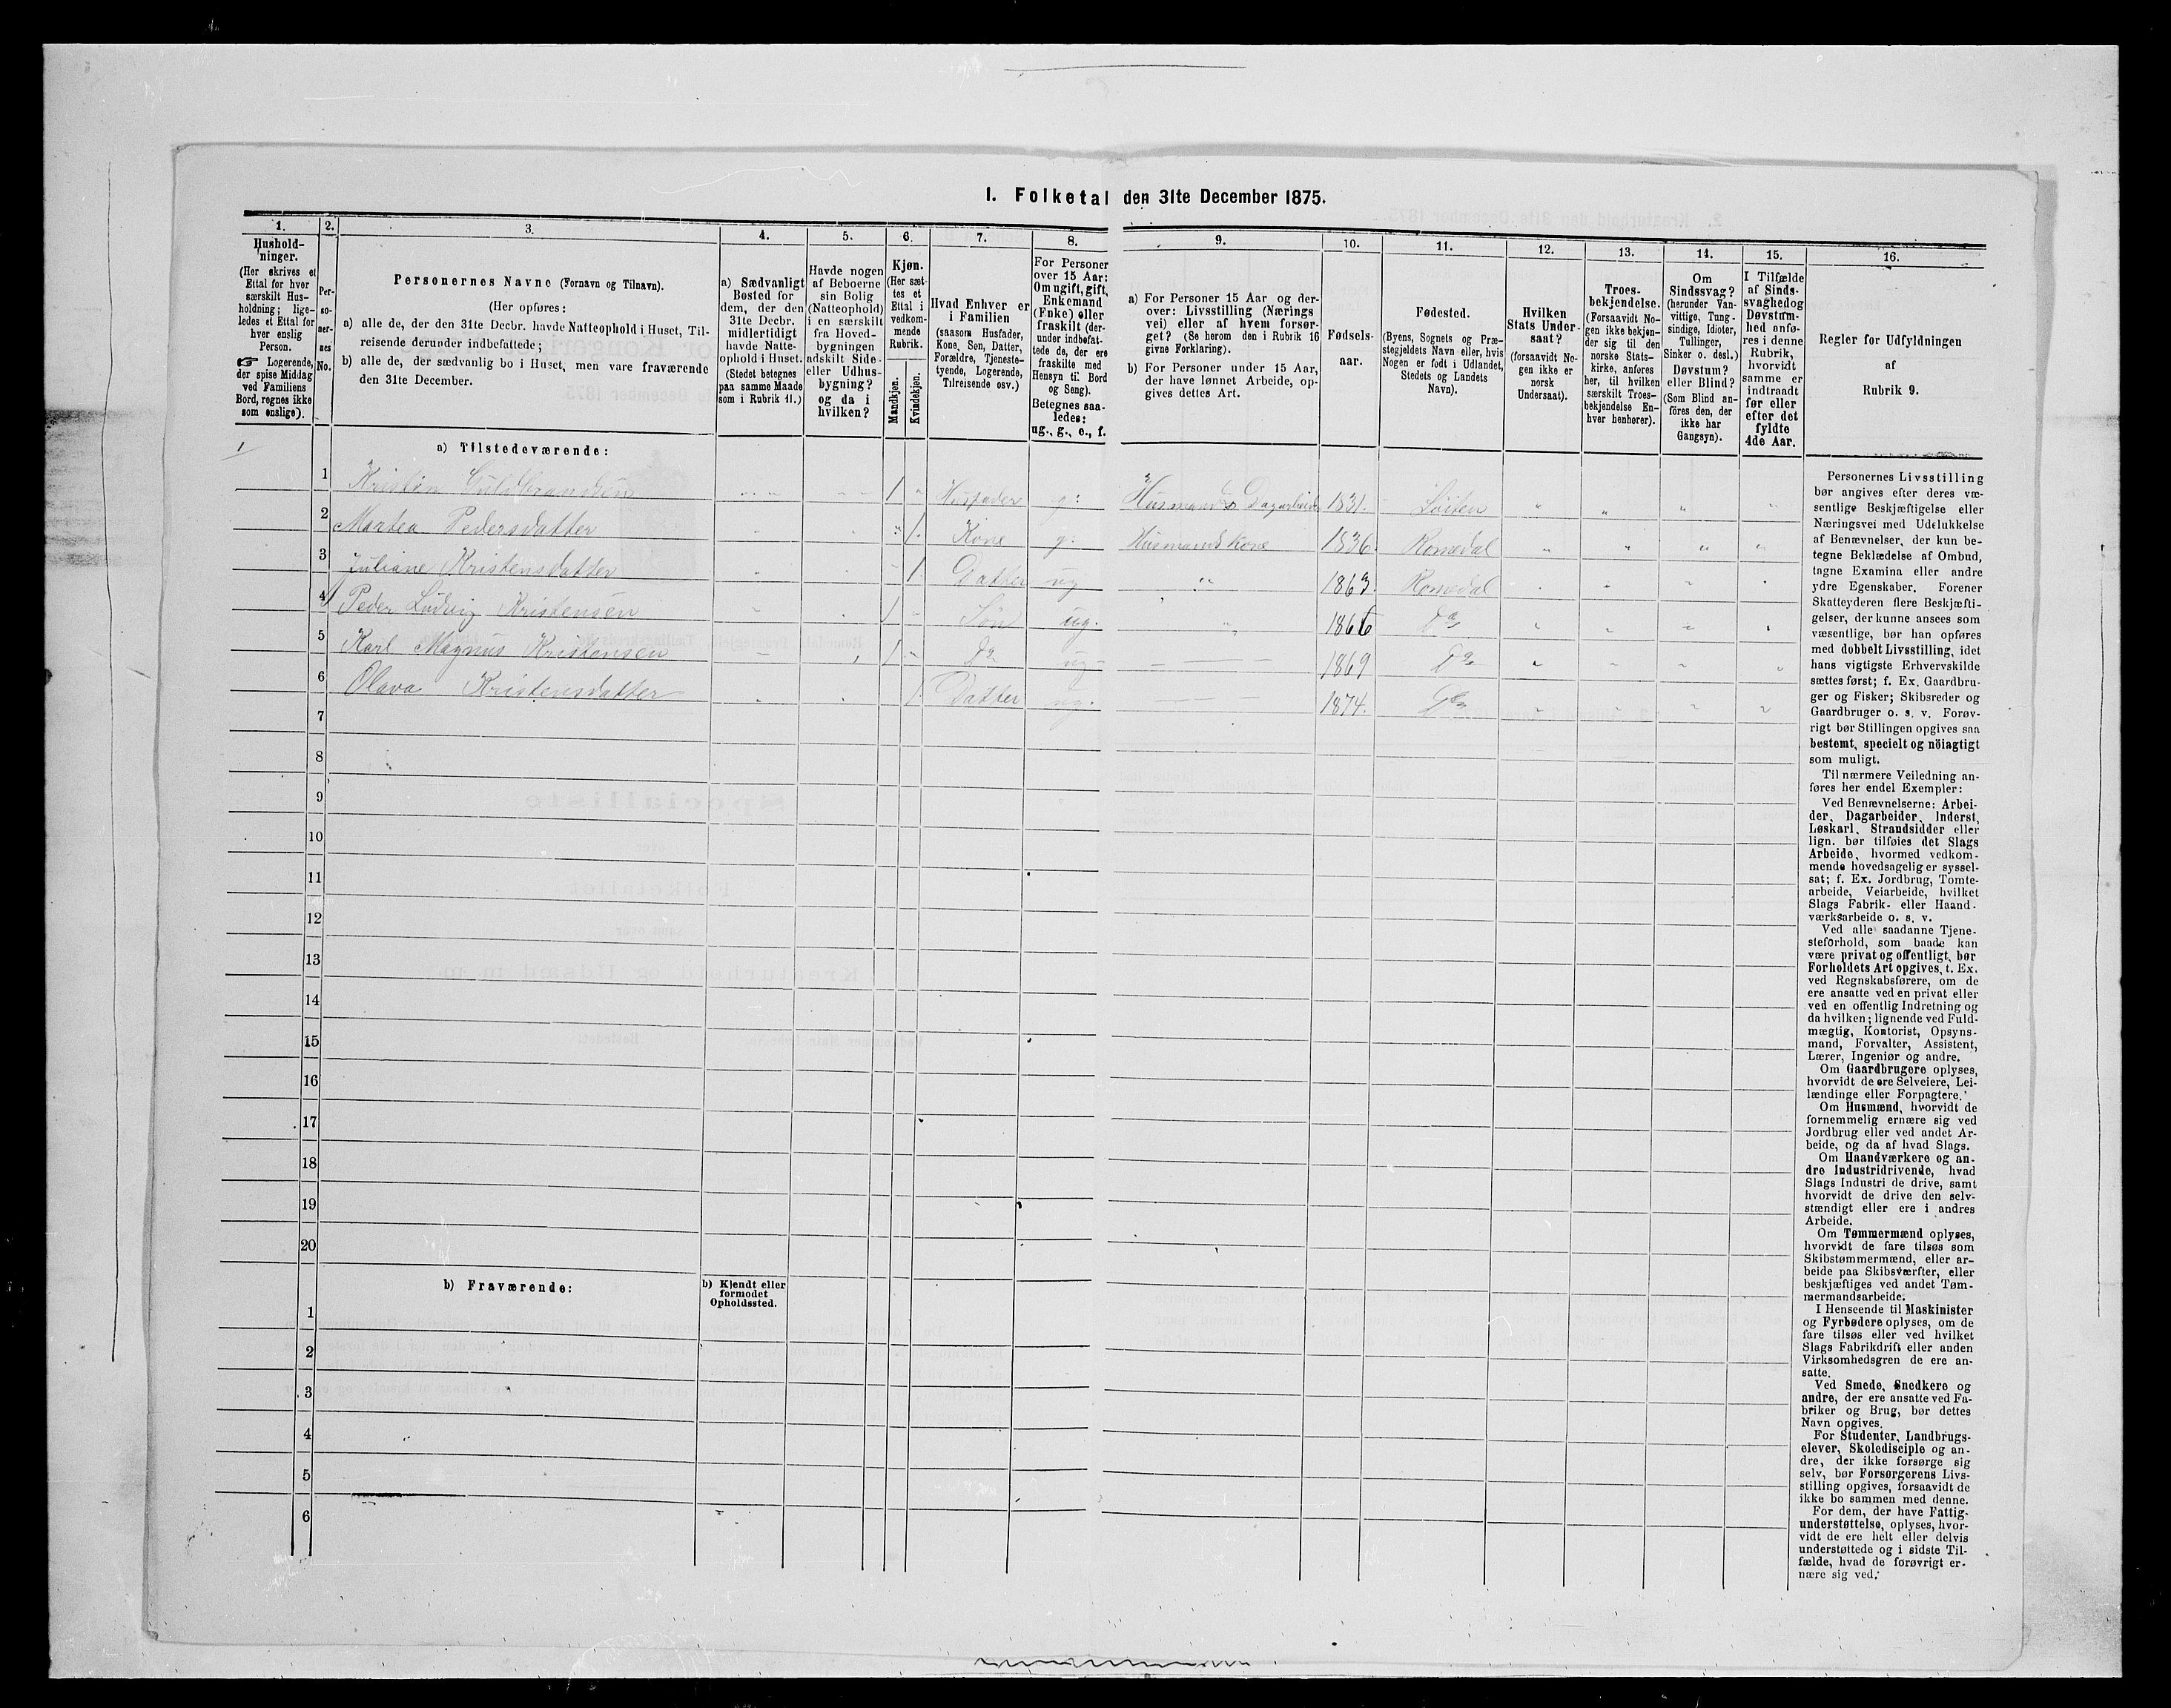 I. Folketal den 31te December 1875.
1.
Hushold-
ninger.
(Her skrives et
Ettal for hver
særskilt Hus-
holdning; lige-
ledes et Ettal for
hver enslig
Person.
☞ Logerende,
der spise Middag
ved Familiens
Bord, regnes ikke
som enslige).
2.
Per-
so-
ner-
nes
No.
3.
Personernes Navne (Fornavn og Tilnavn).
(Her opføres:
a) alle de, der den 31te Decbr. havde Natteophold i Huset, Til-
reisende derunder indbefattede;
b) alle de, der sædvanlig bo i Huset, men vare fraværende
den 31te December.
4.
a) Sædvanligt
Bosted for
dem, der den
31te Decbr.
midlertidigt
havde Natte-
ophold i Huset.
(Stedet betegnes
paa samme Maade
som i Rubrik 11.)
5.
Havde nogen
af Beboerne
sin Bolig
(Natteophold)
i en særskilt
fra Hoved-
bygningen
adskilt Side-
eller Udhus-
bygning?
og da i
hvilken?
6.
Kjøn.
(Her sæt-
tes et
Ettal i
vedkom-
mende
Rubrik.
Mandkjøn.
Kvindekjøn.
7.
Hvad Enhver er
i Familien
(saasom Husfader,
Kone, Søn, Datter,
Forældre, Tjeneste-
tyende, Logerende,
Tilreisende osv.)
8.
For Personer
over 15 Aar:
Om ugift, gift,
Enkemand
(Enke) eller
fraskilt (der-
under indbefat-
tede de, der ere
fraskilte med
Hensyn til Bord
og Seng).
Betegnes saa-
ledes:
ug., g., e., f.
9.
a) For Personer 15 Aar og der-
over: Livsstilling (Nærings
vei) eller af hvem forsør-
get? (Se herom den i Rubrik 16
givne Forklaring).
b) For Personer under 15 Aar,
der have lønnet Arbeide, op-
gives dettes Art.
10.
Fødsels-
aar.
11.
Fødested.
(Byens, Sognets og Præ-
stegjeldets Navn eller, hvis
Nogen er født i Udlandet,
Stedets og Landets
Navn).
12.
Hvilken
Stats Under-
saat?
(forsaavidt No-
gen ikke er
norsk
Undersaat).
13.
Troes-
bekjendelse.
(Forsaavidt No-
gen ikke bekjen-
der sig til den
norske Stats-
kirke, anføres
her, til hvilken
særskilt Troes-
bekjendelse En-
hver henhører).
14.
Om
Sindssvag?
(herunder Van-
vittige, Tung-
sindige, Idioter,
Tullinger,
Sinker o. desl.)
Døvstum?
eller Blind?
(Som Blind an-
føres den, der
ikke har
Gangsyn).
15.
I Tilfælde
af Sinds-
svaghed og
Døvstum-
hed anfø-
res i denne
Rubrik,
hvorvidt
samme er
indtraadt
før eller
efter det
fyldte
4de Aar.
16.
Regler for Udfyldningen
af
Rubrik 9.
1
a) Tilstedeværende:
1 Kristen Guldbrandsen " " " " " 1 " Husfader g: Husmand Dagarbeide 1831. Løiten " " " "
2 Martea Pedersdatter " " " 1. Kone g: Husmands Kone 1836. Romedal " " " "
3 Juliane Kristensdatter " " " 1. Datter ug " 1863. Romedal " " " "
4 Peder Ludvig Kristensen " " 1 " Søn ug. " 1866 Do " " " "
5 Karl Magnus Kristensen " " 1 " Do ug - — — — 1869 Do " " " "
6 Olava Kristensdatter " " 1 Datter ug. — — 1874. Do " " " "
7
8
9
10
11
12
13
14
15
16
17
18
19
20
b) Fraværende:
b) Kjendt eller
formodet
Opholdssted.
1
2
3
4
5
6
Personernes Livsstilling
bør angives efter deres væ-
sentlige Beskjæftigelse eller
Næringsvei med Udelukkelse
af Benævnelser, der kun be-
tegne Beklædelse af Ombud,
tagne Examina eller andre
ydre Egenskaber. Forener
Skatteyderen flere Beskjæfti-
gelser, der kunne ansees som
væsentlige, bør han opføres
med dobbelt Livsstilling, idet
hans vigtigste Erhvervskilde
sættes først; f. Ex. Gaardbru-
ger og Fisker; Skibsreder og
Gaardbruger o. s. v. Forøv-
rigt bør Stillingen opgives saa
bestemt, specielt og nöiagtigt
som muligt.
Til nærmere Veiledning an-
føres her endel Exempler:
Ved Benævnelserne: Arbei-
der, Dagarbeider, Inderst,
Løskarl, Strandsidder eller
lign. bør tilføies det Slags
Arbeide, hvormed vedkom-
mende hovedsagelig er syssel-
sat; f. Ex. Jordbrug, Tomte-
arbeide, Veiarbeide, hvilket
Slags Fabrik- eller Haand-
værksarbeide o. s. v.
Ved alle saadanne Tjene-
steforhold, som baade kan
være privat og offentligt, bør
Forholdets Art opgives, t. Ex.
ved Regnskabsførere, om de
ere ansatte ved en privat eller
ved en offentlig Indretning og
da hvilken; lignende ved Fuld-
mægtig, Kontorist, Opsyns-
mand, Forvalter, Assistent,
Lærer, Ingeniør og andre.
Om Gaardbrugere oplyses,
hvorvidt de ere Selveiere, Lei-
lændinge eller Forpagtere.
Om Husmænd, hvorvidt de
fornemmelig ernære sig ved
Jordbrug eller ved andet Ar-
beide, og da af hvad Slags.
Om Haandværkere og an-
dre Industridrivende, hvad
Slags Industri de drive, samt
hvorvidt de drive den selv-
stændigt eller ere i andres
Arbeide.
Om Tømmermænd oplyses,
hvorvidt de fare tilsøs som
Skibstømmermænd, eller ar-
beide paa Skibsværfter, eller
beskjæftiges ved andet Tøm-
mermandsarbeide.
I Henseende til Maskinister
og Fyrbødere oplyses, om de
fare tilsøs eller ved hvilket
Slags Fabrikdrift eller anden
Virksomhedsgren de ere an-
satte.
Ved Smede, Snedkere og
andre, der ere ansatte ved Fa-
briker og Brug, bør dettes
Navn opgives.
For Studenter, Landbrugs-
elever, Skoledisciple og an-
dre, der ikke forsørge sig
selv, bør Forsørgerens Livs-
stilling opgives, forsaavidt de
ikke bo sammen med denne.
For dem, der have Fattig-
understøttelse, oplyses, hvor-
vidt de ere helt eller delvis
understøttede og i sidste Til-
fælde, hvad de forøvrigt er-
nære sig ved.